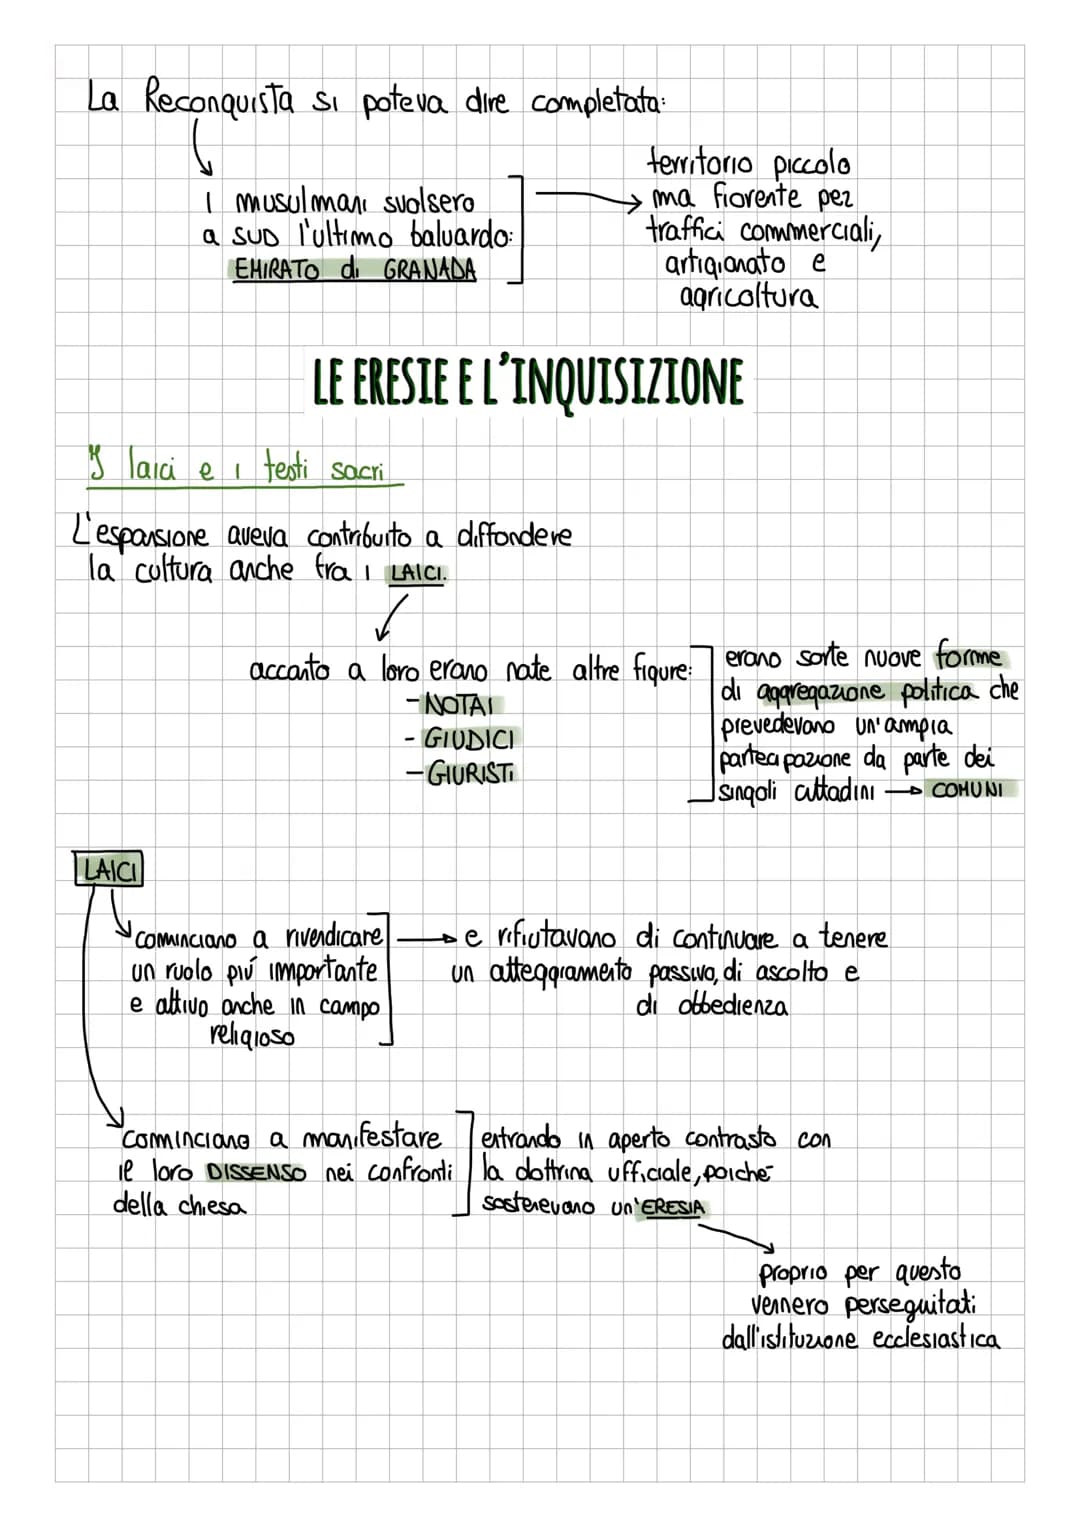 La Reconquista si poteva dire completata:
i musulmani svolsero
a SUD l'ultimo baluardo:
EMIRATO di GRANADA
territorio piccolo
ma fiorente per
traffici commerciali,
artigianato e
agricoltura
LE ERESIE E L'INQUISIZIONE
I laici e i testi sacri
L'espansione aveva contribuito a diffondere
la cultura anche fra i LAICI.
accanto a loro erano nate altre figure:
- NOTAI
- GIUDICI
- GIURISTI
erano sorte nuove forme
di aggregazione politica che
prevedevano un'ampia
partecipazione da parte dei
singoli cittadini → COMUNI
LAICI
cominciano a rivendicare
un ruolo più importante
e attivo anche in campo
religioso
e rifiutavano di continuare a tenere
un atteggiamento passivo, di ascolto e
di obbedienza
cominciano a manifestare
il loro DISSENSO nei confronti
della chiesa
entrando in aperto contrasto con
la dottrina ufficiale, poiché
sostenevano un'ERESIA
proprio per questo
vennero perseguitati
dall'istituzione ecclesiastica